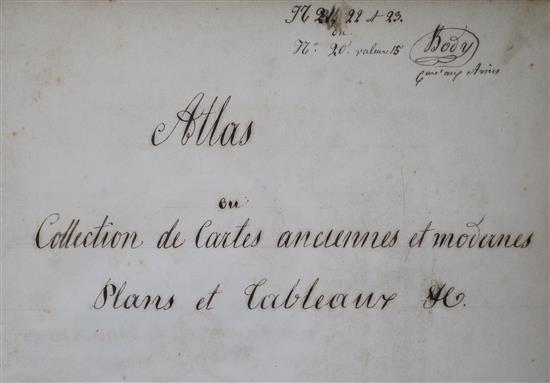 N 21, 22 et 23.
ou
N° 20. valeur 15
Body
aux
Atlas
ou
Collection de Cartes anciennes et modernes
Plans et Tableaux &c.